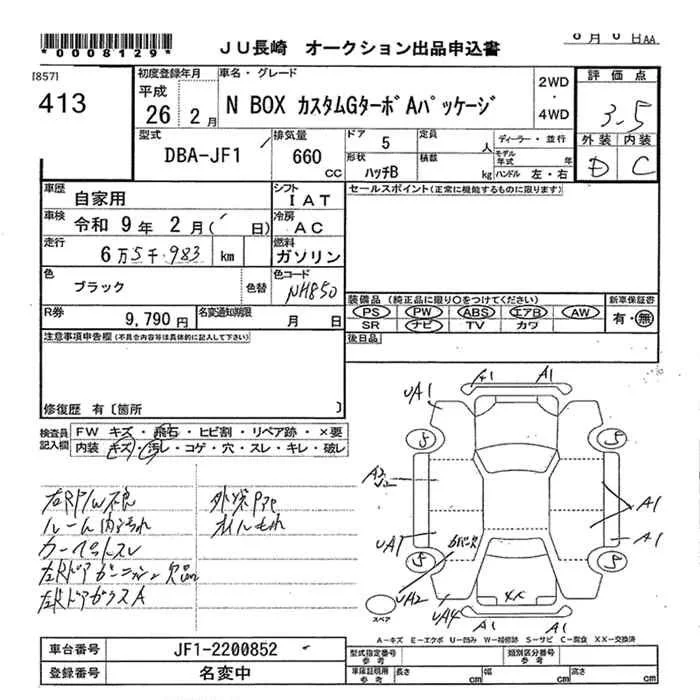 *0008129*
JU長崎 オークション出品申込書
8月6日AA
[857]
413
初度登録年月
平成
26 2月
車名・グレード
N BOX カスタムGターボAパッケージ
2WD
・
4WD
評価点
3-5
外装 内装
D C
型式
DBA-JF1
排気量
660
CC
ドア 5
形状
ハッチB
定員
人
積載
kg
ディーラー・並行
モデル年式 年
ハンドル 左・右
車歴
自家用
シフト
IAT
セールスポイント(正常に機能するものに限ります)
車検
令和 9年 2月( 日)
冷房
AC
走行
6万5千983 km
燃料
ガソリン
色
ブラック
色替
色コード
NH850
装備品(純正品に限り○をつけてください)
PS PW ABS エアB AW
SR ナビ TV カワ
新車保証書
有・無
R券
9,790円
名変通知期限
月 日
後日品
注意事項申告欄(不具合内容等は具体的に記入して下さい)
修復歴 有〔箇所 〕
検査員記入欄
FW キズ・飛石・ヒビ割・リペア跡・×要
内装 キズ・汚レ・コゲ・穴・スレ・キレ・破レ
左RP/W不良
ルーム内汚れ
カーペットスレ
左Rドアガーニッシュ欠品
左RドアガラスA
外装
オイルもれ
A1 A1
UA1
5 5
A1
UA1
A1
5 5
UA2
UA4
XX
A1 A1
スペア
A-キズ E-エクボ U-凹み W-補修跡 S-サビ C-腐食 XX-交換済
車台番号
JF1-2200852
登録番号
名変中
型式指定番号
参考
類別区分番号
参考
車庫証明用
参考
長さ cm
幅 cm
高さ cm